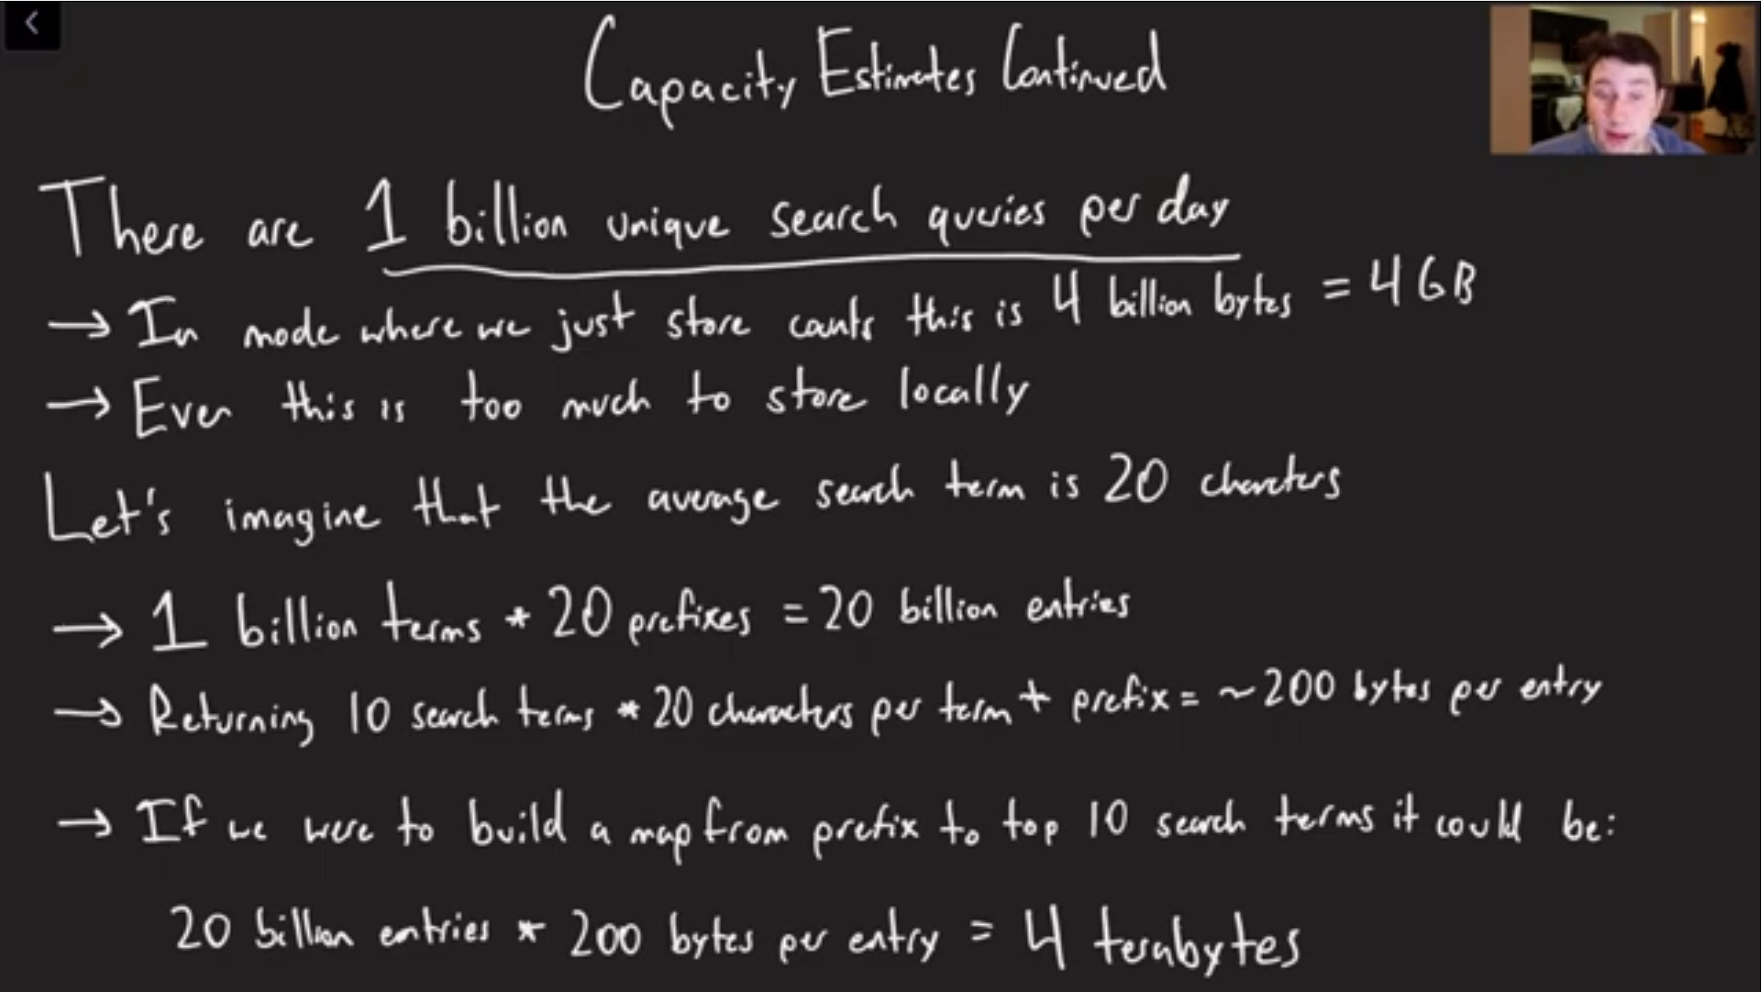 Capacity Estimates Continued
There are 1 billion unique search queries per day
→ In mode where we just store counts this is 4 billion bytes = 4 GB
→ Even this is too much to store locally
Let's imagine that the average search term is 20 characters
→ 1 billion terms * 20 prefixes = 20 billion entries
→ Returning 10 search terms * 20 characters per term + prefix = ~200 bytes per entry
→ If we were to build a map from prefix to top 10 search terms it could be:
20 billion entries * 200 bytes per entry = 4 terabytes